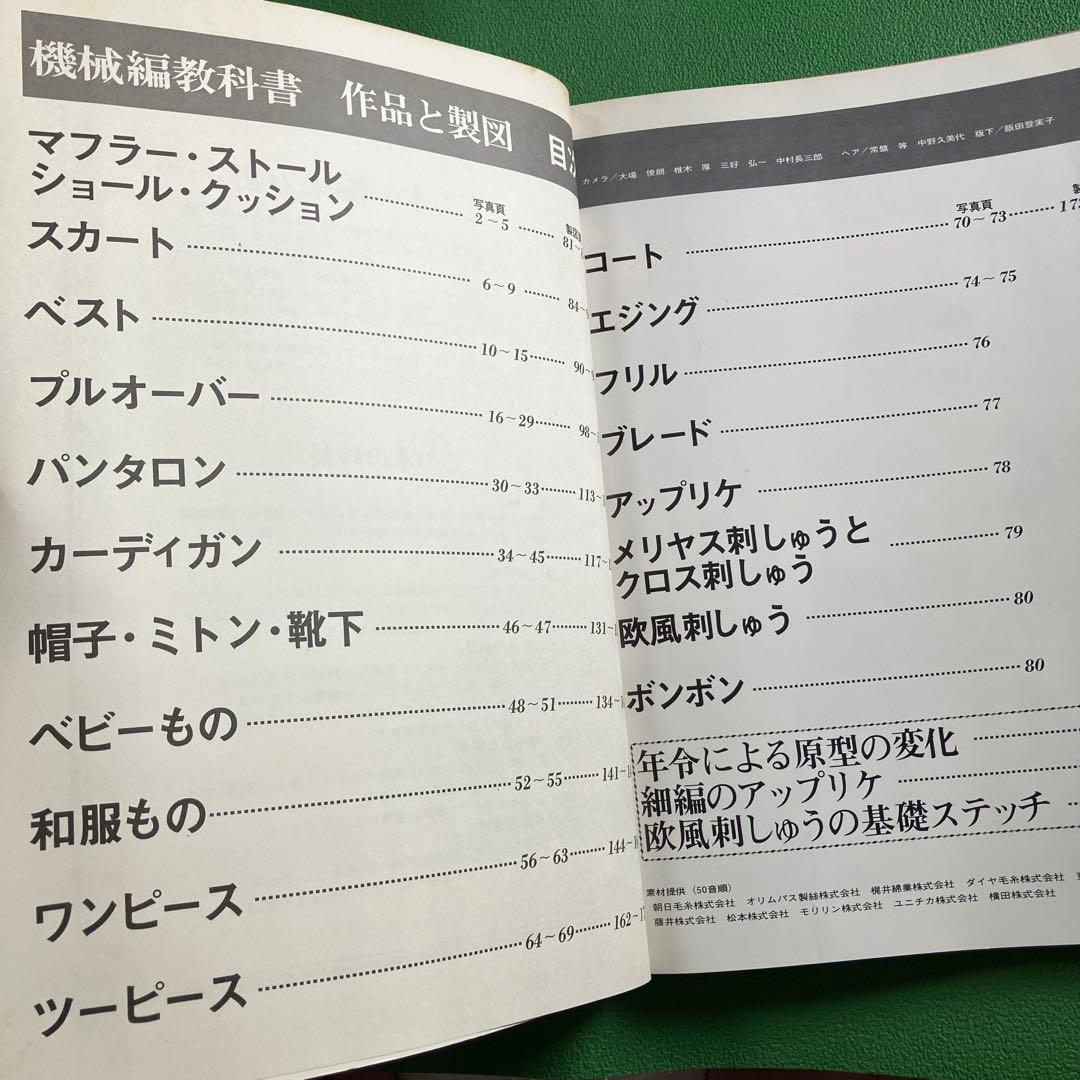 機械編教科書 作品と製図 目次
マフラー・ストール
ショール・クッション 写真頁 2～5 製図 81～
スカート 6～9 84～
ベスト 10～15 90～
プルオーバー 16～29 98～
パンタロン 30～33 113～
カーディガン 34～45 117～
帽子・ミトン・靴下 46～47 131～
ベビーもの 48～51 134～
和服もの 52～55 141～
ワンピース 56～63 144～
ツーピース 64～69 162～
カメラ／大場 俊朗 椎木 厚 三好 弘一 中村長三郎 ヘア／常盤 等 中野久美代 版下／飯田登実子
コート 写真頁 70～73 173
エジング 74～75
フリル 76
ブレード 77
アップリケ 78
メリヤス刺しゅうと
クロス刺しゅう 79
欧風刺しゅう 80
ボンボン 80
年令による原型の変化
細編のアップリケ
欧風刺しゅうの基礎ステッチ
素材提供（50音順）
朝日毛糸株式会社 オリムパス製絲株式会社 梶井綿業株式会社 ダイヤ毛糸株式会社
藤井株式会社 松本株式会社 モリリン株式会社 ユニチカ株式会社 横田株式会社